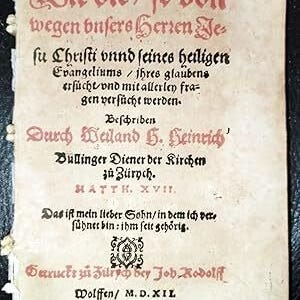 wegen vnsers Herren Je-
su Christi vnnd seines heiligen
Evangeliums / jhres glaubens
ersůcht / vnd mit allerley fra-
gen versůcht werden.
Beschriben
Durch Weiland H. Heinrich
Bullinger Diener der Kirchen
zů Zürych.
MATTH. XVII.
Das ist mein lieber Sohn / in dem ich ver-
sühnet bin: ihm seit gehörig.
Getruckt zů Zürych bey Joh. Rodolff
Wolffen / M. D. XII.